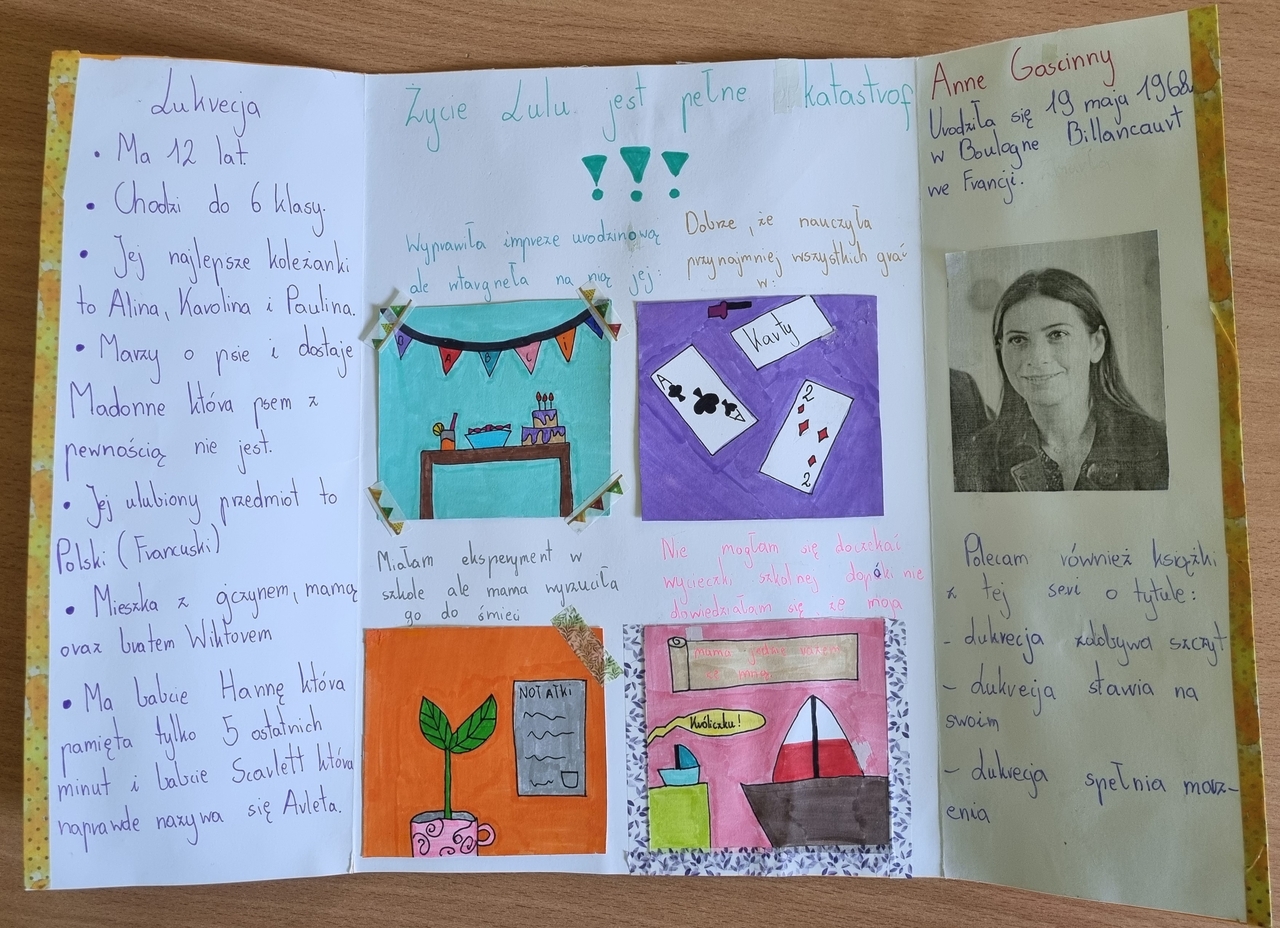 Lukrecja
• Ma 12 lat
• Chodzi do 6 klasy.
• Jej najlepsze koleżanki
to Alina, Karolina i Paulina.
• Marzy o psie i dostaje
Madonne która psem z
pewnością nie jest.
• Jej ulubiony przedmiot to
Polski (Francuski)
• Mieszka z ojczynem, mamą
oraz bratem Wiktorem
• Ma babcie Hannę która
pamięta tylko 5 ostatnich
minut i babcie Scarlett która
naprawde nazywa się Arleta.
Życie Lulu jest pełne katastrof
!!!
Wyprawiła impreze urodzinową
ale wtargnęła na nią jej:
BABCI
Dobrze, że nauczyła
przynajmniej wszystkich grać
w:
Karty
A
A
2
2
Miałam eksperyment w
szkole ale mama wyrzuciła
go do śmieci
NOTATKI
Nie mogłam się doczekać
wycieczki szkolnej dopóki nie
dowiedziałam się, że moja
mama jedzie razem
ze mną
Króliczku!
Anne Goscinny
Urodziła się 19 maja 1968
w Boulogne Billancaurt
we Francji.
Polecam również książki
z tej seri o tytule:
- Lukrecja zdobywa szczyt
- Lukrecja stawia na
swoim
- Lukrecja spełnia marz-
enia